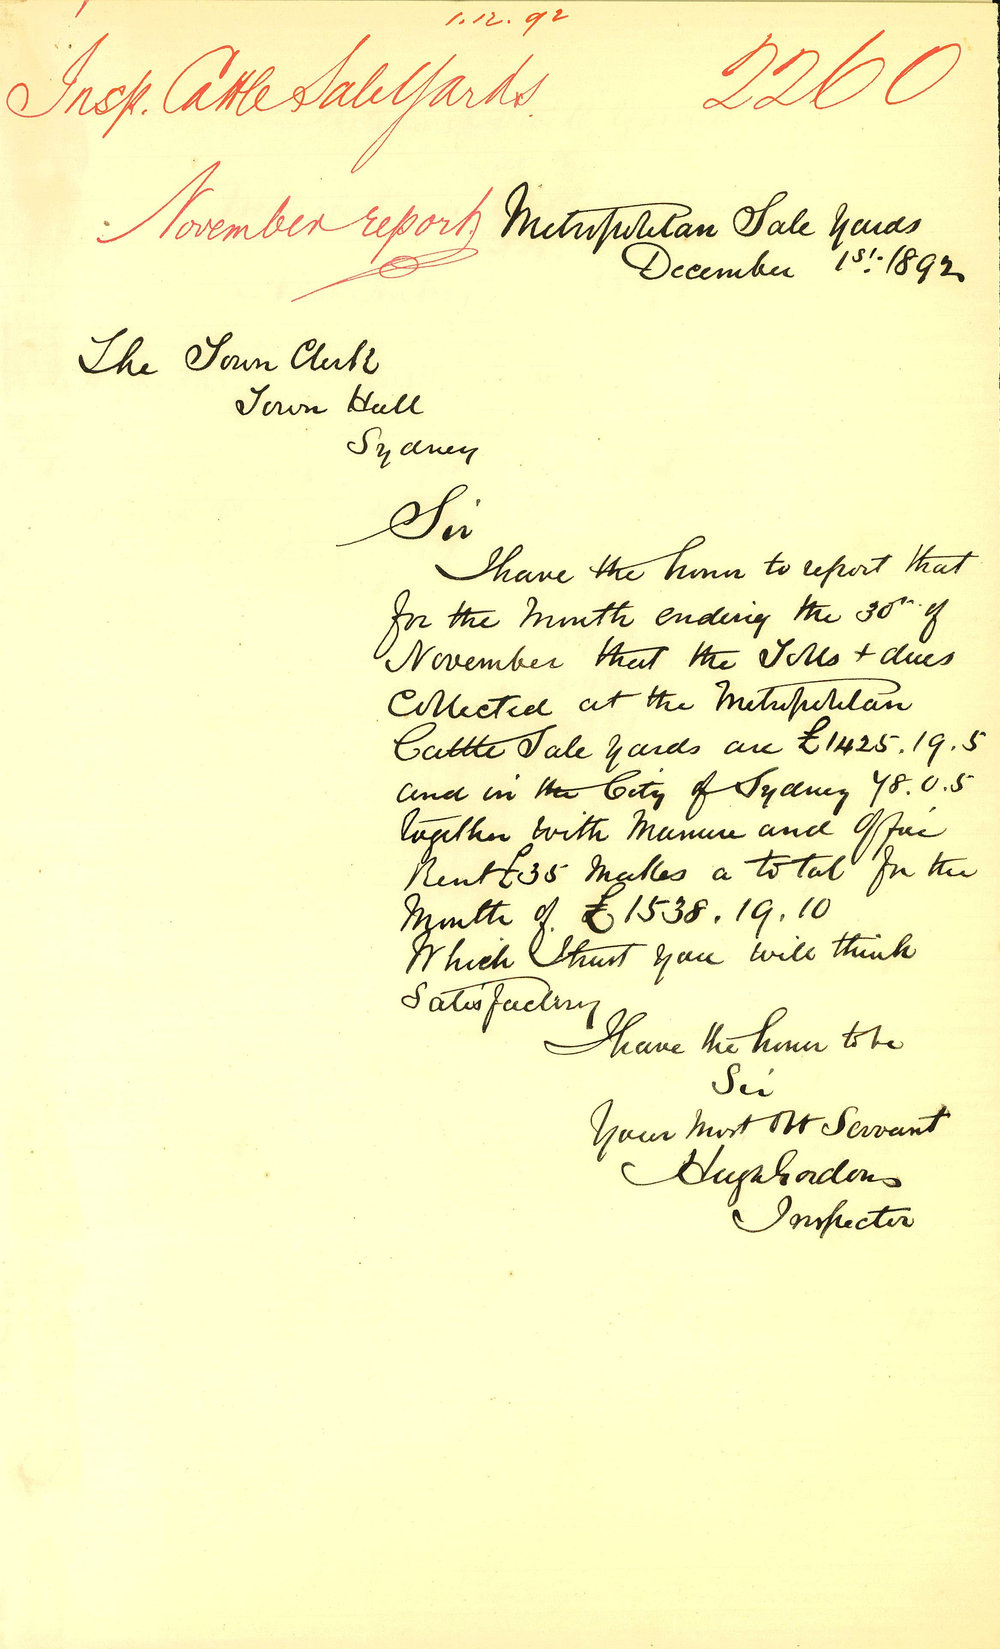 1.12.92
Insp. Cattle Sale Yards.
2260
November report.
Metropolitan Sale Yards
December 1st. 1892
The Town Clerk
Town Hall
Sydney
Sir
I have the honor to report that
for the Month ending the 30th of
November that the Tolls + dues
Collected at the Metropolitan
Cattle Sale Yards are £1425.19.5
and in the City of Sydney 78.0.5
together with Manure and Office
Rent £35 Makes a total for the
Month of £1538.19.10
Which I trust you will think
Satisfactory
I have the honor to be
Sir
Your Most Obt Servant
Hugh Gordon
Inspector